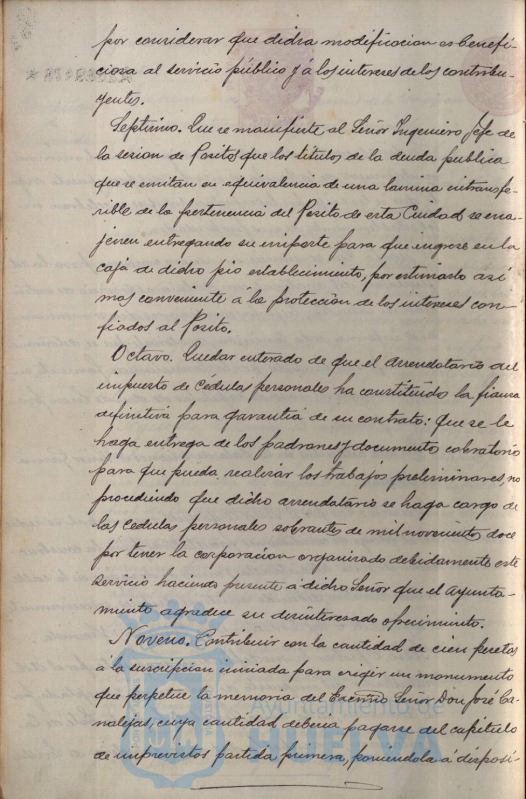 por considerar que dicha modificacion es benefi-
ciosa al servicio público y á los intereses de los contribu-
yentes.
Septimo. Que se manifieste al Señor Ingeniero Jefe de
la sesion de Positos que los titulos de la deuda publica
que se emitan en equivalencia de una lamina intransfe-
rible de la pertenencia del Posito de esta Ciudad se ena-
jenen entregando su importe para que ingrese en la
caja de dicho pio establecimiento, por estimarlo asi
mas conveniente á la proteccion de los intereses con-
fiados al Posito.
Octavo. Quedar enterado de que el arrendatario del
impuesto de cédulas personales ha constituido la fianza
definitiva para garantia de su contrato: Que se le
haga entrega de los padrones y documentos cobratorio
para que pueda realizar los trabajos preliminares, no
procediendo que dicho arrendatario se haga cargo de
las cedulas personales sobrantes de mil novecientos doce
por tener la corporacion organizado debidamente este
servicio haciendo presente á dicho Señor que el Ayunta-
miento agradece su desinteresado ofrecimiento.
Noveno. Contribuir con la cantidad de cien pesetas
á la suscripcion iniciada para erigir un monumento
que perpetue la memoria del Excmo Señor Don José Ca-
nalejas, cuya cantidad deberia pagarse del capitulo
de imprevistos partida primera, poniendola á disposi-
Ayuntamiento de
HUELVA